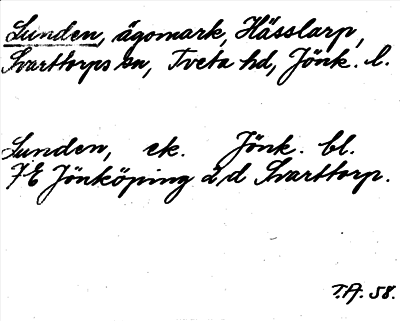 Lunden, ägomark, Hässlarp,
Svarttorps sn, Tveta hd, Jönk. l.
Lunden, ek. Jönk. bl.
7E Jönköping d/d Svarttorp.
T.A. 58.